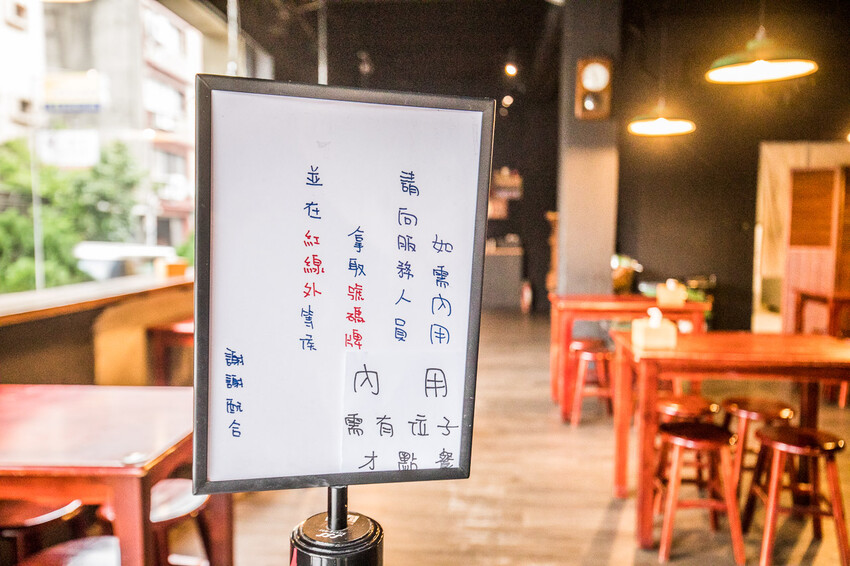 如需內用
請向服務人員
拿取號碼牌
並在紅線外等候
謝謝配合
內用
需有位子
才點餐